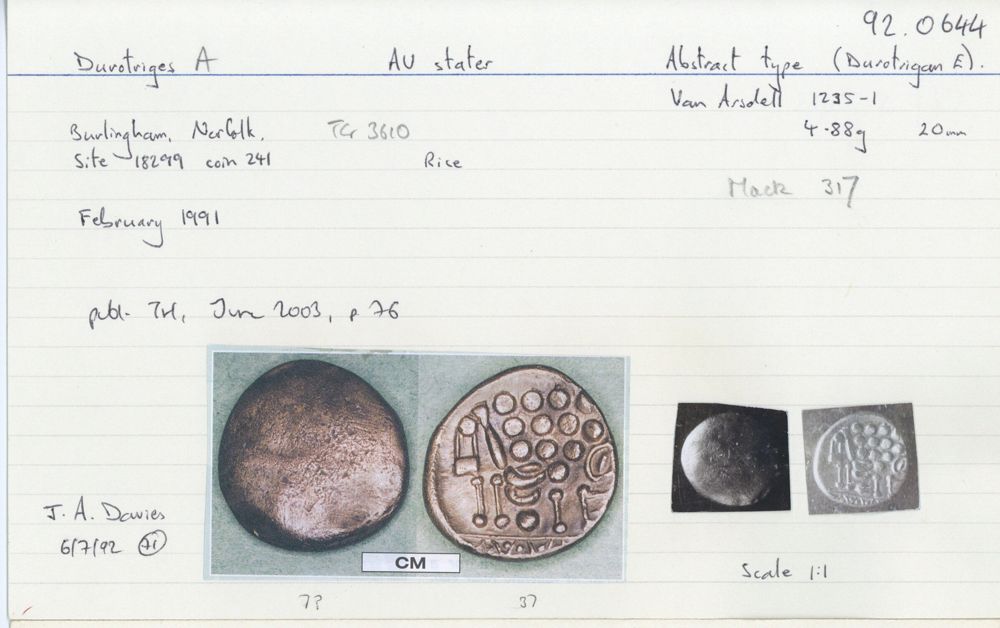 92.0644
Durotriges A AU stater Abstract type (Durotrigan E).
Van Arsdell 1235-1
Burlingham, Norfolk. TCr 3610 4.88g 20mm
Site 18299 coin 241 Rice
Mack 317
February 1991
publ. TH, June 2003, p 76
J. A. Davies
6/7/92 71
CM
Scale 1:1